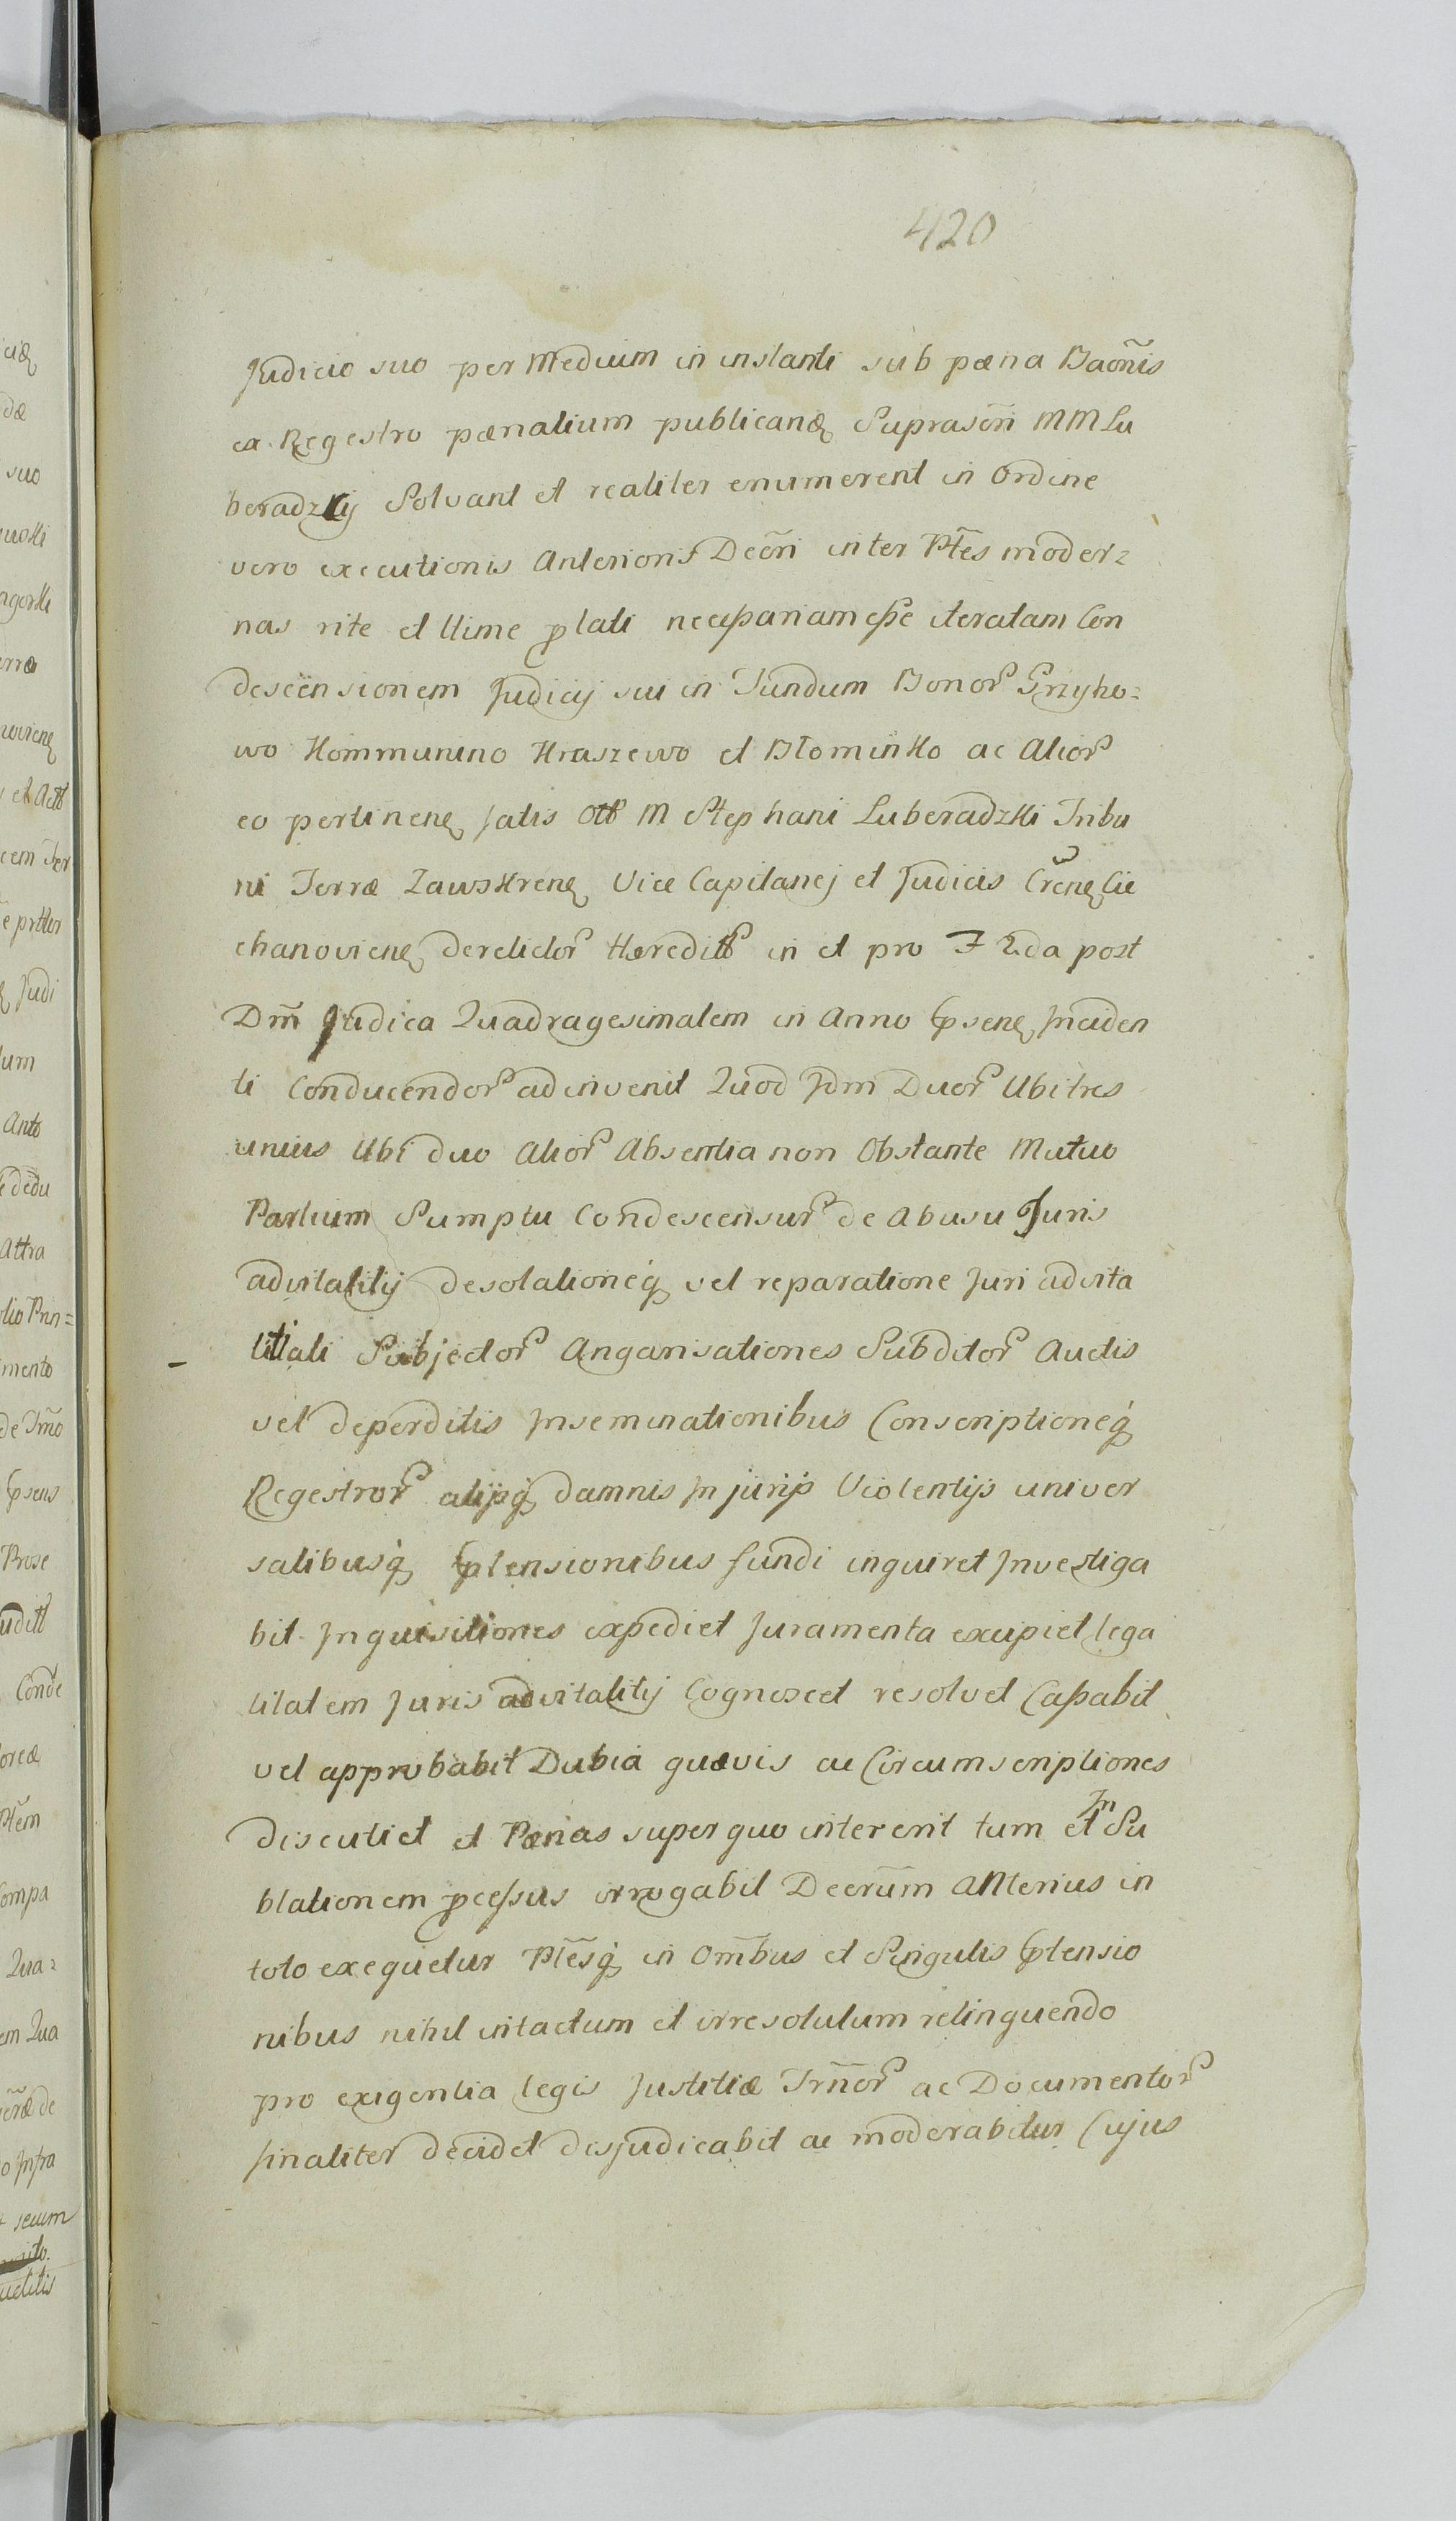 420
Judicio suo per Medium in instanti sub pæna Baõnis
ex Regestro pænalium publicanę Suprascrñ MM Lu
beradzkij Solvant et realiter enumerent in Ordine
vero executionis Anterioris Decr̃i inter Ptẽs moder=
nas rite et llime plati necessariam esse iteratam Con
descensionem Judicij sui in Fundum Bonor Grzybo=
wo Kommunino Kraszewo et Błominko ac Alior
eo pertinenę fatis Olt M Stephani Luberadzki Tribu
ni Terræ Zawskrenę Vice Capitanej et Judicis Crenę Cie
chanovienę derelictor Hæreditt in et pro F 2da post
Dm̃ Judica Quadragesimalem in Anno psenę Inciden
ti Conducendor adinvenit Quod Jdm Duor Ubi tres
unius Ubi duo Alior Absentia non Obstante Mutuo
Partium Sumptu Condescensur de Abusu Juris
advitalitij desolationeq vel reparatione Juri advita
litiali Subjector Angarisationes Subditor Auctis
vel deperditis Inseminationibus Conscriptioneq
Regestror alijsq damnis Injurijs Violentijs univer
salibusq ptensionibus fundi inquiret Investiga
bit Inquisitiones expediet Juramenta excipiet lega
litatem Juris advitalitij Cognoscet resolvet Cassabit
vel approbabit Dubia quævis ac Circumscriptiones
discutiet et Pænas super quo intererit tum et In Su
blationem pcessus irrogabit Decrum̃ Anterius in
toto exequetur Ptẽsq in Om̃bus et Singulis ptensio
nibus nihil intactum et irresolutum relinquendo
pro exigentia legis Justitiæ Jrñor ac Documentor
finaliter decidet disjudicabit ac moderabitur Cujus